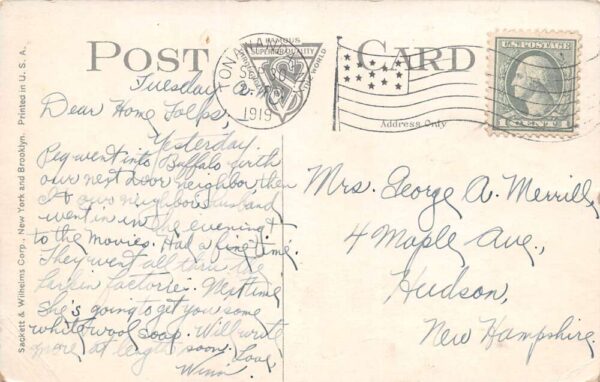 Sackett & Wilhelms Corp., New York and Brooklyn. Printed in U. S. A.
POST CARD
FAMOUS
SUPERIOR QUALITY
1919
Address Only
U.S. POSTAGE
1 CENT 1
Tuesday
Dear Home Folks,
Yesterday
Peg went into Buffalo with
our next door neighbor then
I & our neighbor's husband
went in in the evening &
to the movies. Had a fine time.
They went all thru the
Larkin factories. Next time
she's going to get you some
white wool soap. Will write
more at length soon. Love,
Mrs. George A. Merrill,
4 Maple Ave.,
Hudson,
New Hampshire.